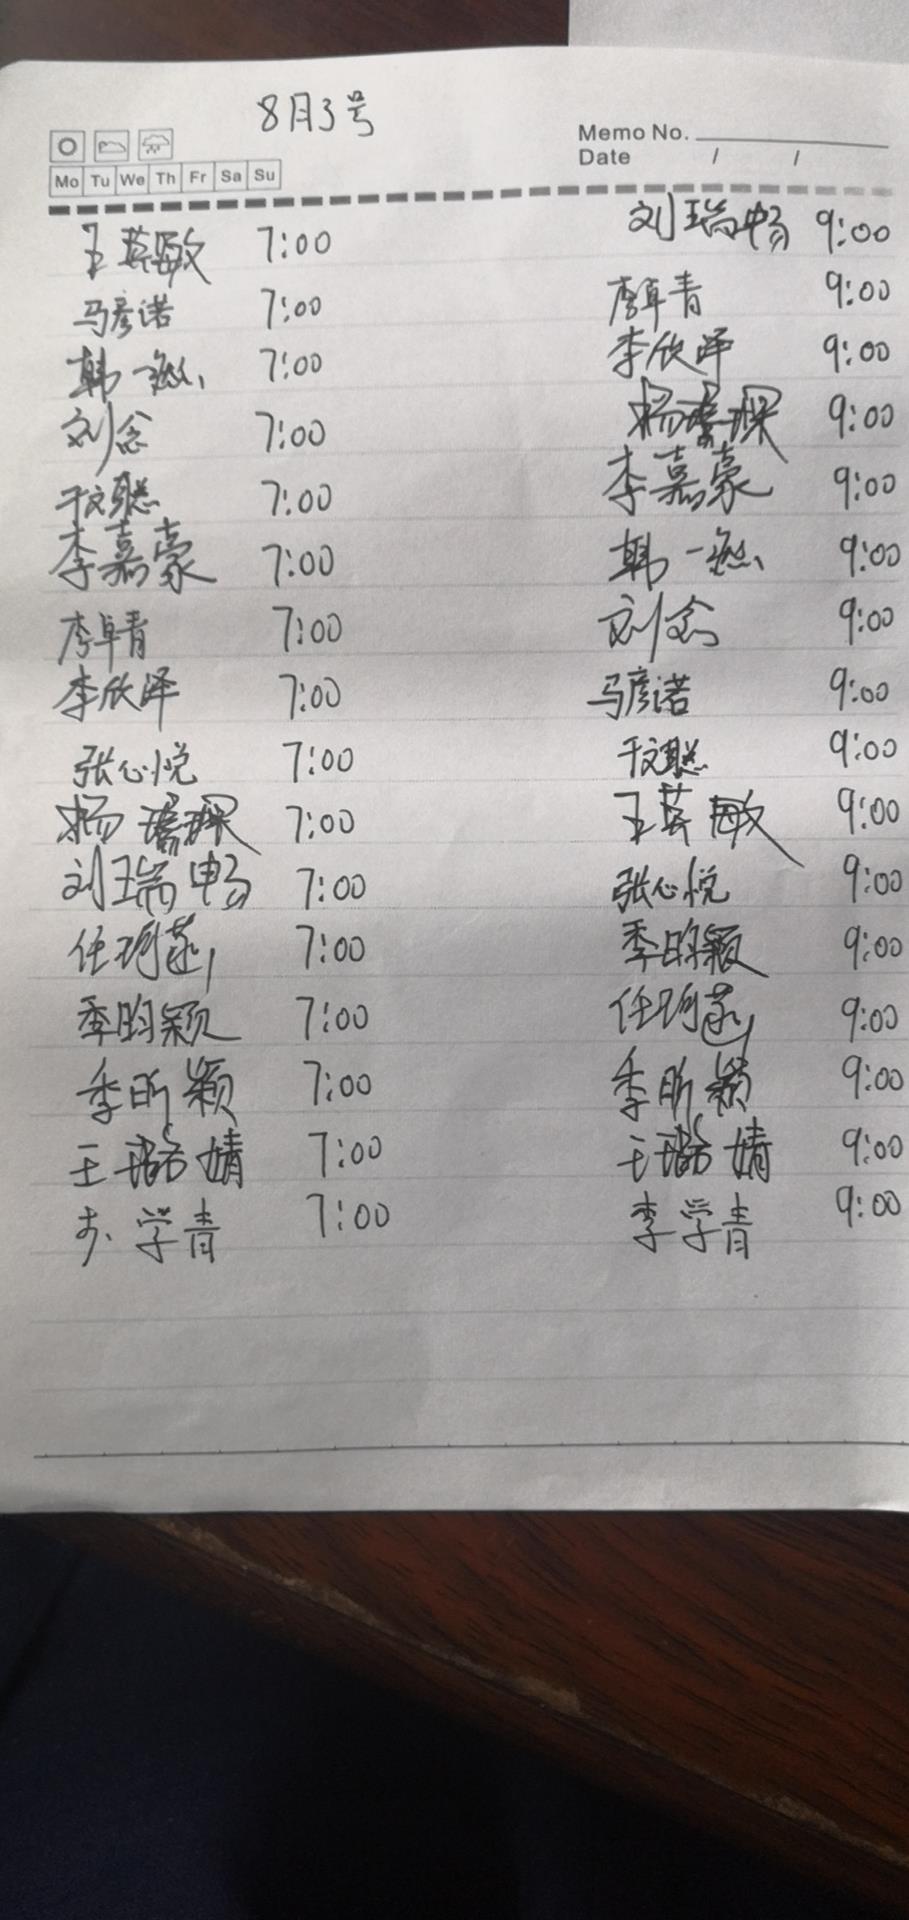 8月3号
Memo No.
Date / /
Mo Tu We Th Fr Sa Su
王英敏 7:00 刘瑞畅 9:00
马彦诺 7:00 李卓青 9:00
韩一 7:00 李欣泽 9:00
刘念 7:00 杨 琛 9:00
于文聪 7:00 李嘉豪 9:00
李嘉豪 7:00 韩一 9:00
李卓青 7:00 刘念 9:00
李欣泽 7:00 马彦诺 9:00
张心悦 7:00 于文聪 9:00
杨 琛 7:00 王英敏 9:00
刘瑞畅 7:00 张心悦 9:00
任 7:00 季昀颖 9:00
季昀颖 7:00 任 9:00
季昕颖 7:00 季昕颖 9:00
王璐婧 7:00 王璐婧 9:00
学青 7:00 李学青 9:00